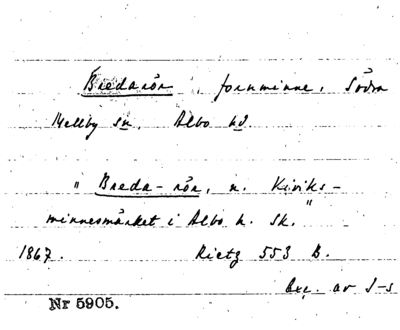 Bredarör, fornminne, Södra
Mellby sn, Albo hd.
" Breda-rör, n. Kiviks-
minnesmärket i Albo h. Sk. "
1867. Rietz 553 B.
Exc. av J-s
Nr 5905.